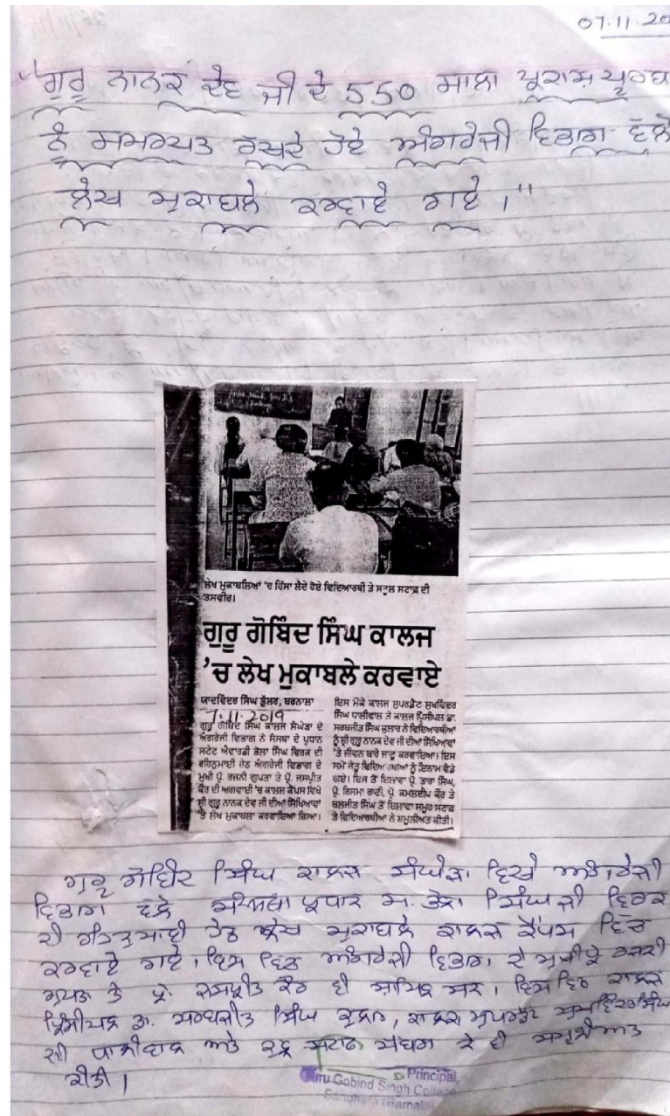 07.11.20
"ਗੁਰੂ ਨਾਨਕ ਦੇਵ ਜੀ ਦੇ 550 ਸਾਲਾ ਪ੍ਰਕਾਸ਼ ਪੂਰਬ
ਨੂੰ ਸਮਰਪਤ ਰੱਖਦੇ ਹੋਏ ਅੰਗਰੇਜੀ ਵਿਭਾਗ ਵੱਲੋਂ
ਲੇਖ ਮੁਕਾਬਲੇ ਕਰਵਾਏ ਗਏ।"
ਲੇਖ ਮੁਕਾਬਲਿਆਂ 'ਚ ਹਿੱਸਾ ਲੈਂਦੇ ਹੋਏ ਵਿਦਿਆਰਥੀ ਤੇ ਸਕੂਲ ਸਟਾਫ਼ ਦੀ
ਤਸਵੀਰ।
ਗੁਰੂ ਗੋਬਿੰਦ ਸਿੰਘ ਕਾਲਜ
'ਚ ਲੇਖ ਮੁਕਾਬਲੇ ਕਰਵਾਏ
ਯਾਦਵਿੰਦਰ ਸਿੰਘ ਭੁੱਲਰ, ਬਰਨਾਲਾ
7.11.2019
ਗੁਰੂ ਗੋਬਿੰਦ ਸਿੰਘ ਕਾਲਜ ਸੰਘੇੜਾ ਦੇ
ਅੰਗਰੇਜੀ ਵਿਭਾਗ ਨੇ ਸੰਸਥਾ ਦੇ ਪ੍ਰਧਾਨ
ਸਟੇਟ ਐਵਾਰਡੀ ਭੋਲਾ ਸਿੰਘ ਵਿਰਕ ਦੀ
ਰਹਿਨੁਮਾਈ ਹੇਠ ਅੰਗਰੇਜੀ ਵਿਭਾਗ ਦੇ
ਮੁਖੀ ਪ੍ਰੋ. ਰਜਨੀ ਗੁਪਤਾ ਤੇ ਪ੍ਰੋ. ਜਸਪ੍ਰੀਤ
ਕੌਰ ਦੀ ਅਗਵਾਈ 'ਚ ਕਾਲਜ ਕੈਂਪਸ ਵਿਖੇ
ਸ੍ਰੀ ਗੁਰੂ ਨਾਨਕ ਦੇਵ ਜੀ ਦੀਆਂ ਸਿੱਖਿਆਵਾਂ
'ਤੇ ਲੇਖ ਮੁਕਾਬਲਾ ਕਰਵਾਇਆ ਗਿਆ।
ਇਸ ਮੌਕੇ ਕਾਲਜ ਸੁਪਰਡੈਂਟ ਸੁਖਵਿੰਦਰ
ਸਿੰਘ ਧਾਲੀਵਾਲ ਤੇ ਕਾਲਜ ਪ੍ਰਿੰਸੀਪਲ ਡਾ.
ਸਰਬਜੀਤ ਸਿੰਘ ਕੁਲਾਰ ਨੇ ਵਿਦਿਆਰਥੀਆਂ
ਨੂੰ ਸ੍ਰੀ ਗੁਰੂ ਨਾਨਕ ਦੇਵ ਜੀ ਦੀਆਂ ਸਿੱਖਿਆਵਾਂ
'ਤੇ ਜੀਵਨ ਬਾਰੇ ਜਾਣੂ ਕਰਵਾਇਆ। ਇਸ
ਸਮੇਂ ਜੇਤੂ ਵਿਦਿਆਰਥੀਆਂ ਨੂੰ ਇਨਾਮ ਵੰਡੇ
ਗਏ। ਇਸ ਤੋਂ ਇਲਾਵਾ ਪ੍ਰੋ. ਤਾਰਾ ਸਿੰਘ,
ਪ੍ਰੋ. ਰਿਸਮਾ ਰਾਣੀ, ਪ੍ਰੋ. ਕਮਲਦੀਪ ਕੌਰ ਤੇ
ਬਲਜੀਤ ਸਿੰਘ ਤੋਂ ਇਲਾਵਾ ਸਮੂਹ ਸਟਾਫ਼
ਤੇ ਵਿਦਿਆਰਥੀਆਂ ਨੇ ਸ਼ਮੂਲੀਅਤ ਕੀਤੀ।
ਗੁਰੂ ਗੋਬਿੰਦ ਸਿੰਘ ਕਾਲਜ ਸੰਘੇੜਾ ਵਿਖੇ ਅੰਗਰੇਜੀ
ਵਿਭਾਗ ਵੱਲੋਂ ਸੰਸਥਾ ਪ੍ਰਧਾਨ ਸ. ਭੋਲਾ ਸਿੰਘ ਜੀ ਵਿਰਕ
ਦੀ ਰਹਿਨੁਮਾਈ ਹੇਠ ਲੇਖ ਮੁਕਾਬਲੇ ਕਾਲਜ ਕੈਂਪਸ ਵਿੱਚ
ਕਰਵਾਏ ਗਏ। ਇਸ ਵਿੱਚ ਅੰਗਰੇਜੀ ਵਿਭਾਗ ਦੇ ਮੁਖੀ ਪ੍ਰੋ ਰਜਨੀ
ਗੁਪਤਾ ਤੇ ਪ੍ਰੋ. ਜਸਪ੍ਰੀਤ ਕੌਰ ਵੀ ਸ਼ਾਮਿਲ ਸਨ। ਇਸ ਵਿੱਚ ਕਾਲਜ
ਪ੍ਰਿੰਸੀਪਲ ਡਾ. ਸਰਬਜੀਤ ਸਿੰਘ ਕੁਲਾਰ, ਕਾਲਜ ਸੁਪਰਡੈਂਟ ਸੁਖਵਿੰਦਰ ਸਿੰਘ
ਜੀ ਧਾਲੀਵਾਲ ਅਤੇ ਸਟਾਫ ਮੈਂਬਰਾਂ ਨੇ ਵੀ ਸ਼ਮੂਲੀਅਤ
ਕੀਤੀ।
Principal,
Guru Gobind Singh College
Sanghera (Barnala)